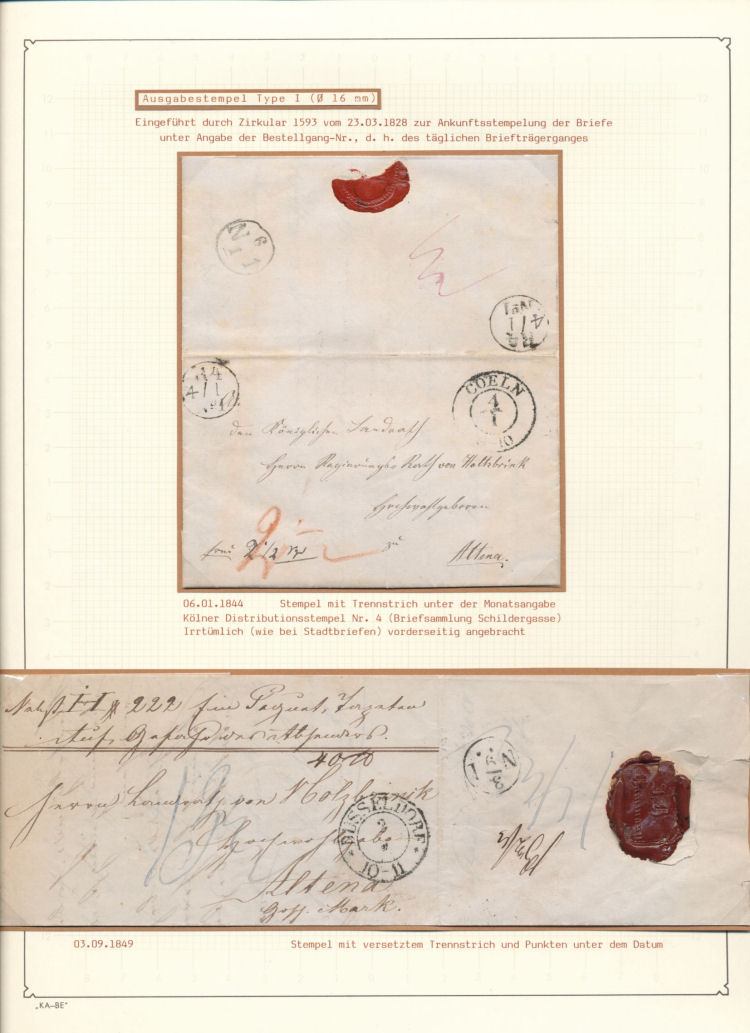 Ausgabestempel Type I (Ø 16 mm)
Eingeführt durch Zirkular 1593 vom 23.03.1828 zur Ankunftsstempelung der Briefe
unter Angabe der Bestellgang-Nr., d. h. des täglichen Briefträgerganges
N 6/1 1
N 4
4/1
4/1
COELN
4/1
den Königlichen Landrath
Herrn Regierungs Rath von Holtzbrink
Hochwohlgeboren
zu
Altena.
06.01.1844 Stempel mit Trennstrich unter der Monatsangabe
Kölner Distributionsstempel Nr. 4 (Briefsammlung Schildergasse)
Irrtümlich (wie bei Stadtbriefen) vorderseitig angebracht
222 Ein Paquet,
Auf Gefahr des Absenders.
N 1
Herrn Landrath von Holzbrink
DÜSSELDORF
10-11
Altena
Grfsch. Mark.
03.09.1849 Stempel mit versetztem Trennstrich und Punkten unter dem Datum
„KA–BE"